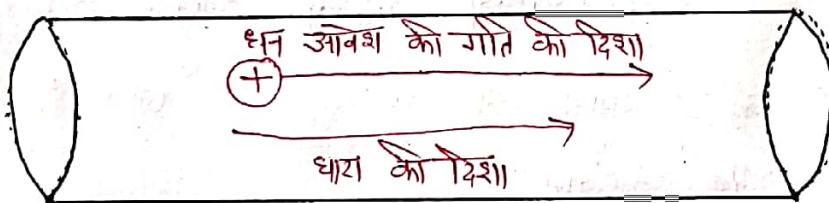 धन आवेश की गति की दिशा
+
धारा की दिशा